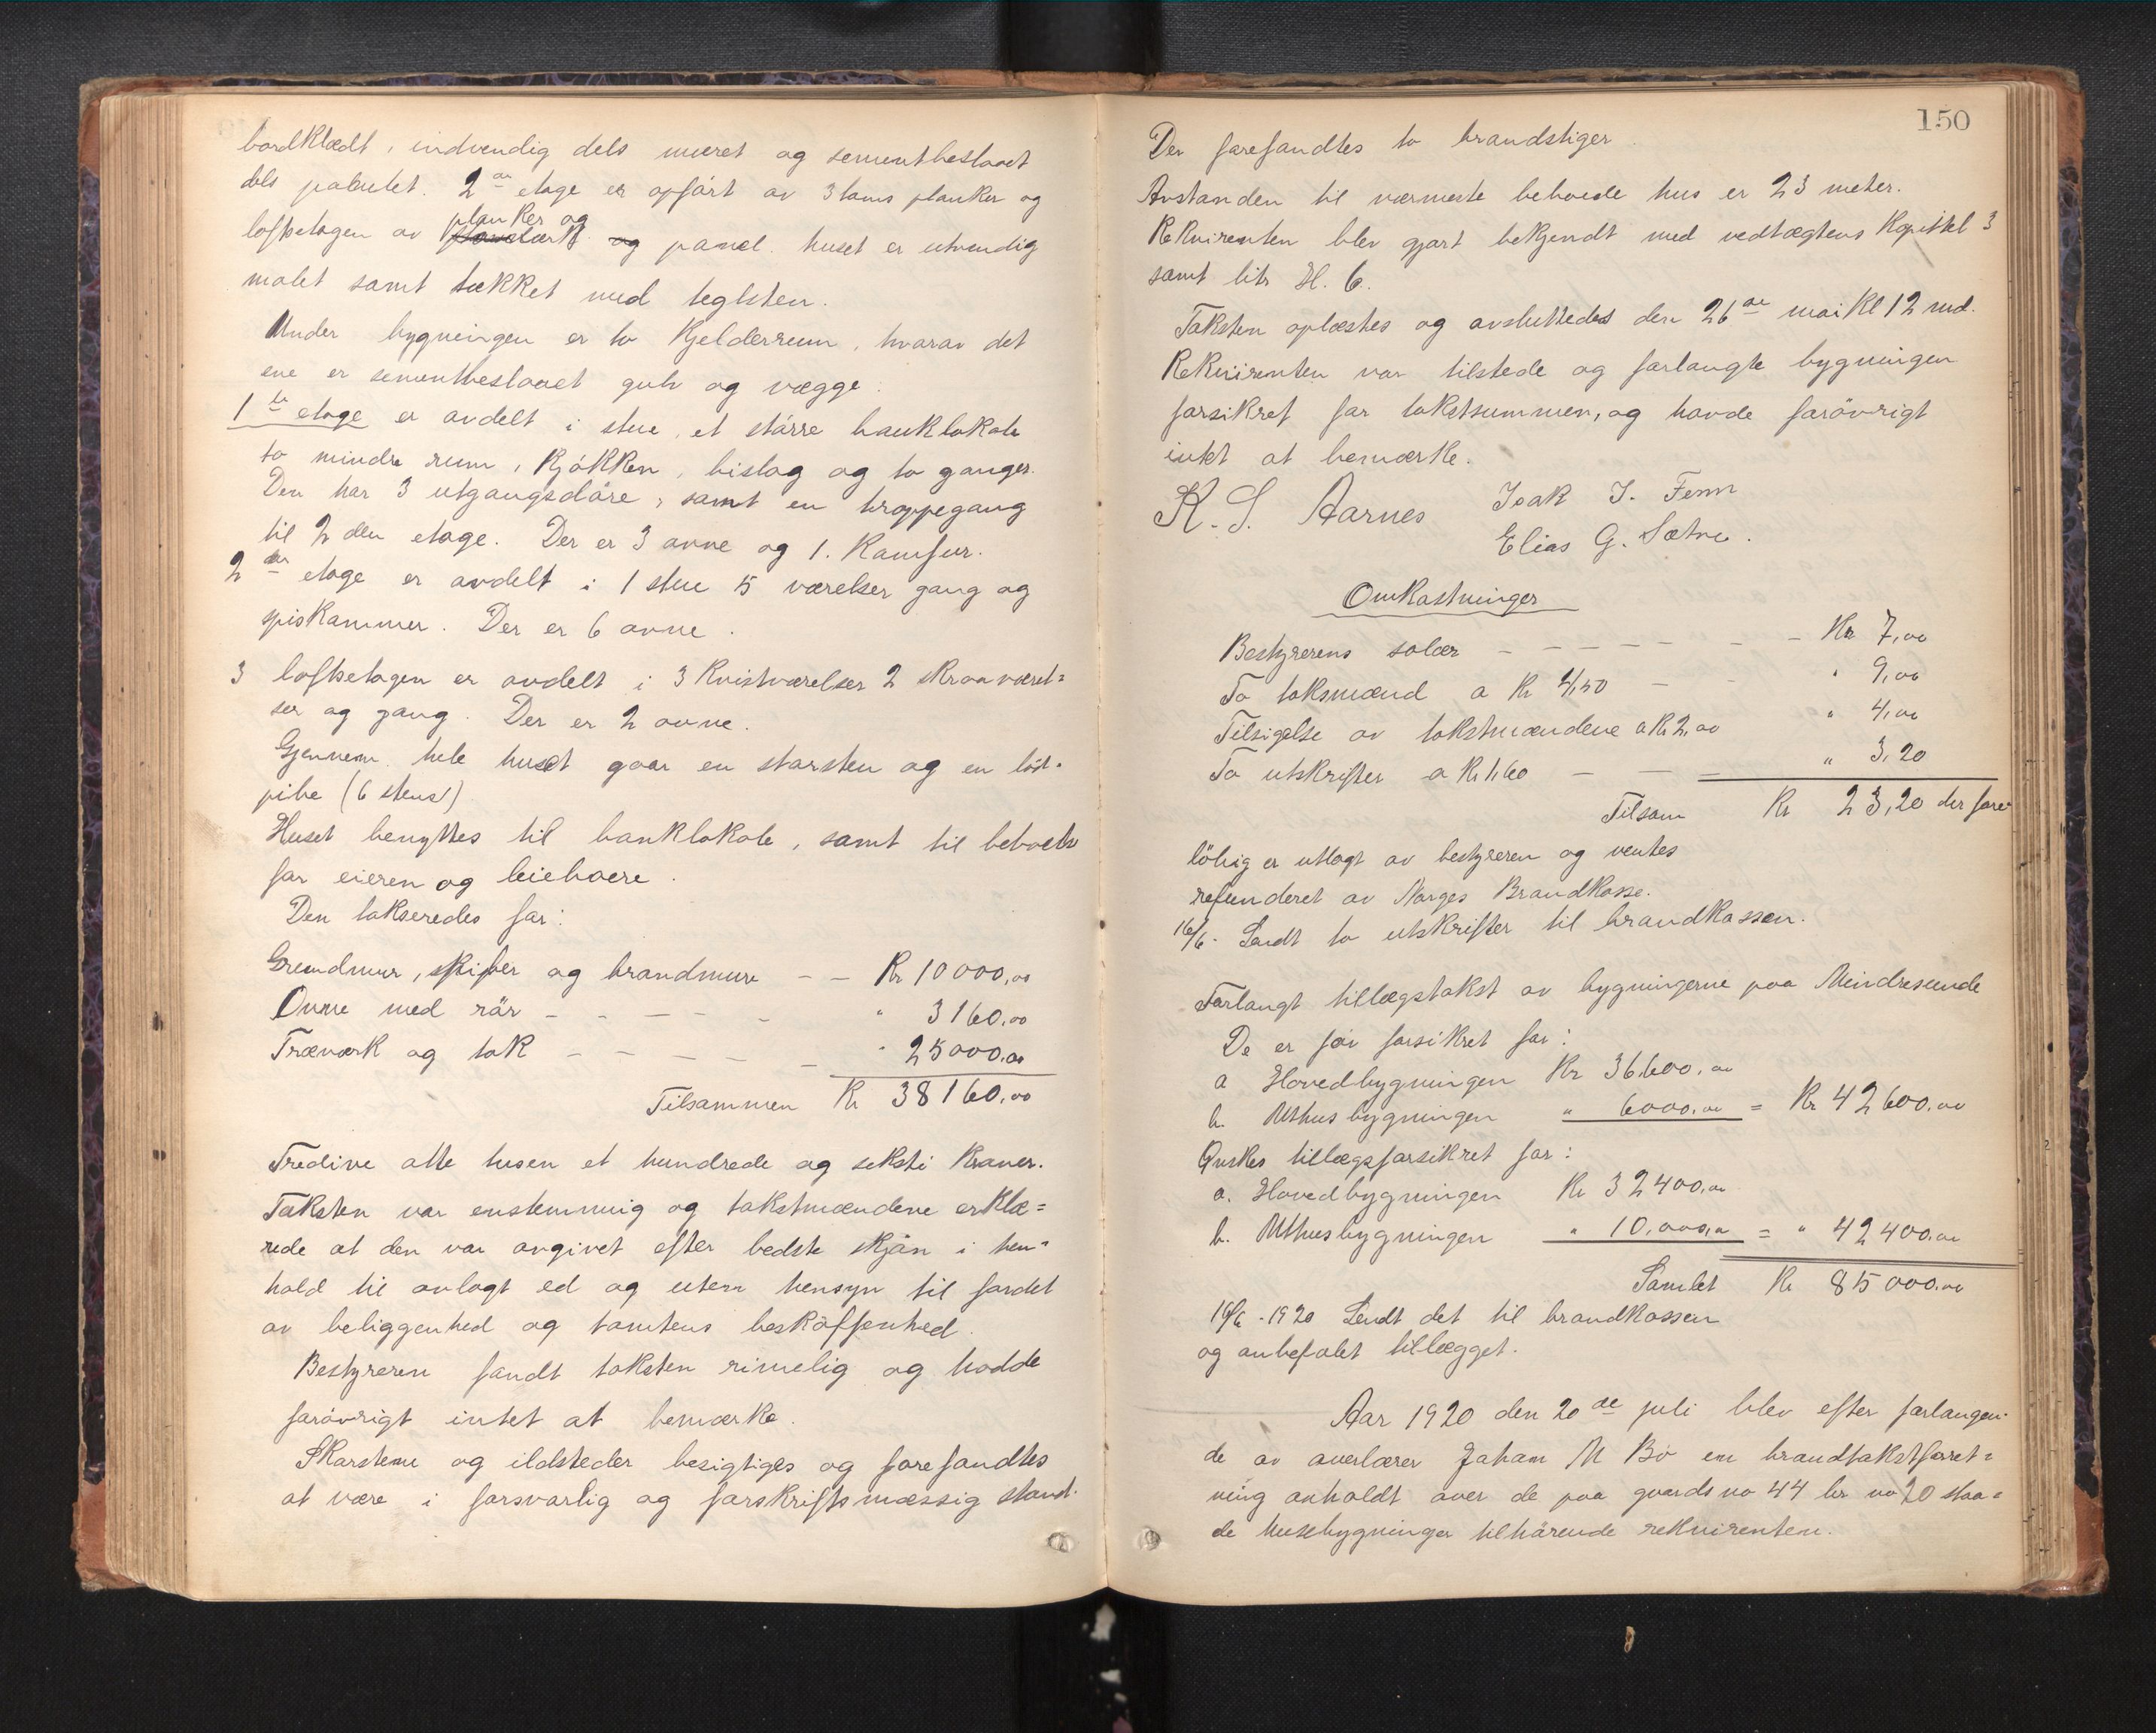 bordklædt, indvendig dels muret og sementbeslaaet
dels panelet. 2en etage er opført av 3 toms planker og
loftsetagen av planker og panel. huset er utvendig
malet samt tækket med teglsten.
Under bygningen er to kjelderrum, hvorav det
ene er sementbeslaaet gulv og vægge.
1ste etage er avdelt i stue, et større banklokale
to mindre rum, kjøkken, bislag og to ganger.
Den har 3 utgangsdøre, samt en troppegang
til 2den etage. Der er 3 ovne og 1. komfur.
2den etage er avdelt i 1 stue 5 værelser gang og
spiskammer. Der er 6 ovne.
3 loftsetagen er avdelt i 3 kvistværelser 2 skraaværel=
ser og gang. Der er 2 ovne.
Gjennem hele huset gaar en skorsten og en
pibe (6 stens)
Huset benyttes til banklokale, samt til beboelse
for eieren og leieboere.
Den takseredes for:
Grundmur, og brandmure – – Kr 10000,00
Ovne med rør – – – – – " 3160,00
Træværk og tak – – – – – " 25000,00
Tilsammen Kr 38160,00
Tredive otte tusen et hundrede og seksti kroner.
Taksten var enstemmig og takstmændene erklæ=
rede at den var avgivet efter bedste skjøn i hen=
hold til avlagt ed og uten hensyn til fordel
av beliggenhed og tomtens beskaffenhed.
Bestyreren fandt taksten rimelig og hadde
forøvrigt intet at bemærke.
Skorstene og ildsteder besigtiges og forefandtes
at være i forsvarlig og forskriftsmæssig stand.
150
Der forefandtes to brandstiger.
Avstanden til nærmeste beboede hus er 23 meter.
Rekvirenten blev gjort bekjendt med vedtægtens Kapitel 3
samt litr H. 6.
Taksten oplæstes og avsluttedes den 26de mai Kl 12 md.
Rekvirenten var tilstede og forlangte bygningen
forsikret for takstsummen, og havde forøvrigt
intet at bemærke.
K. S. Aarnes Isak J. Fenn
Elias G. Sætre.
Omkostninger
Bestyrerens salær – – – – – – Kr 7,00
To taksmænd a Kr 4,50 – – " 9,00
Tilsigelse av takstmændene a Kr 2,00 " 4,00
To utskrifter a Kr 1,60 – – – " 3,20
Tilsam Kr 23,20 der fore
løbig er utlagt av bestyreren og ventes
refunderet av Norges Brandkasse.
16/6. Sendt to utskrifter til brandkassen.
Forlangt tillægstakst av bygningerne paa Mindresunde
De er før forsikret for:
a Hovedbygningen Kr 36,600,00
b. Uthusbygningen " 6000,00 = Kr 42600,00
Ønskes tillægsforsikret for:
a. Hovedbygningen Kr 32400,00
b. Uthusbygningen " 10,000,00 = " 42400,00
Samlet Kr 85000,00
16/6 - 1920 Sendt det til brandkassen
og anbefalet tillægget.
Aar 1920 den 20de juli blev efter forlangen-
de av overlærer Johan M Bø en brandtakstforret=
ning avholdt over de paa gaards no 44 br no 20 staa=
de husebygninger tilhørende rekvirenten.